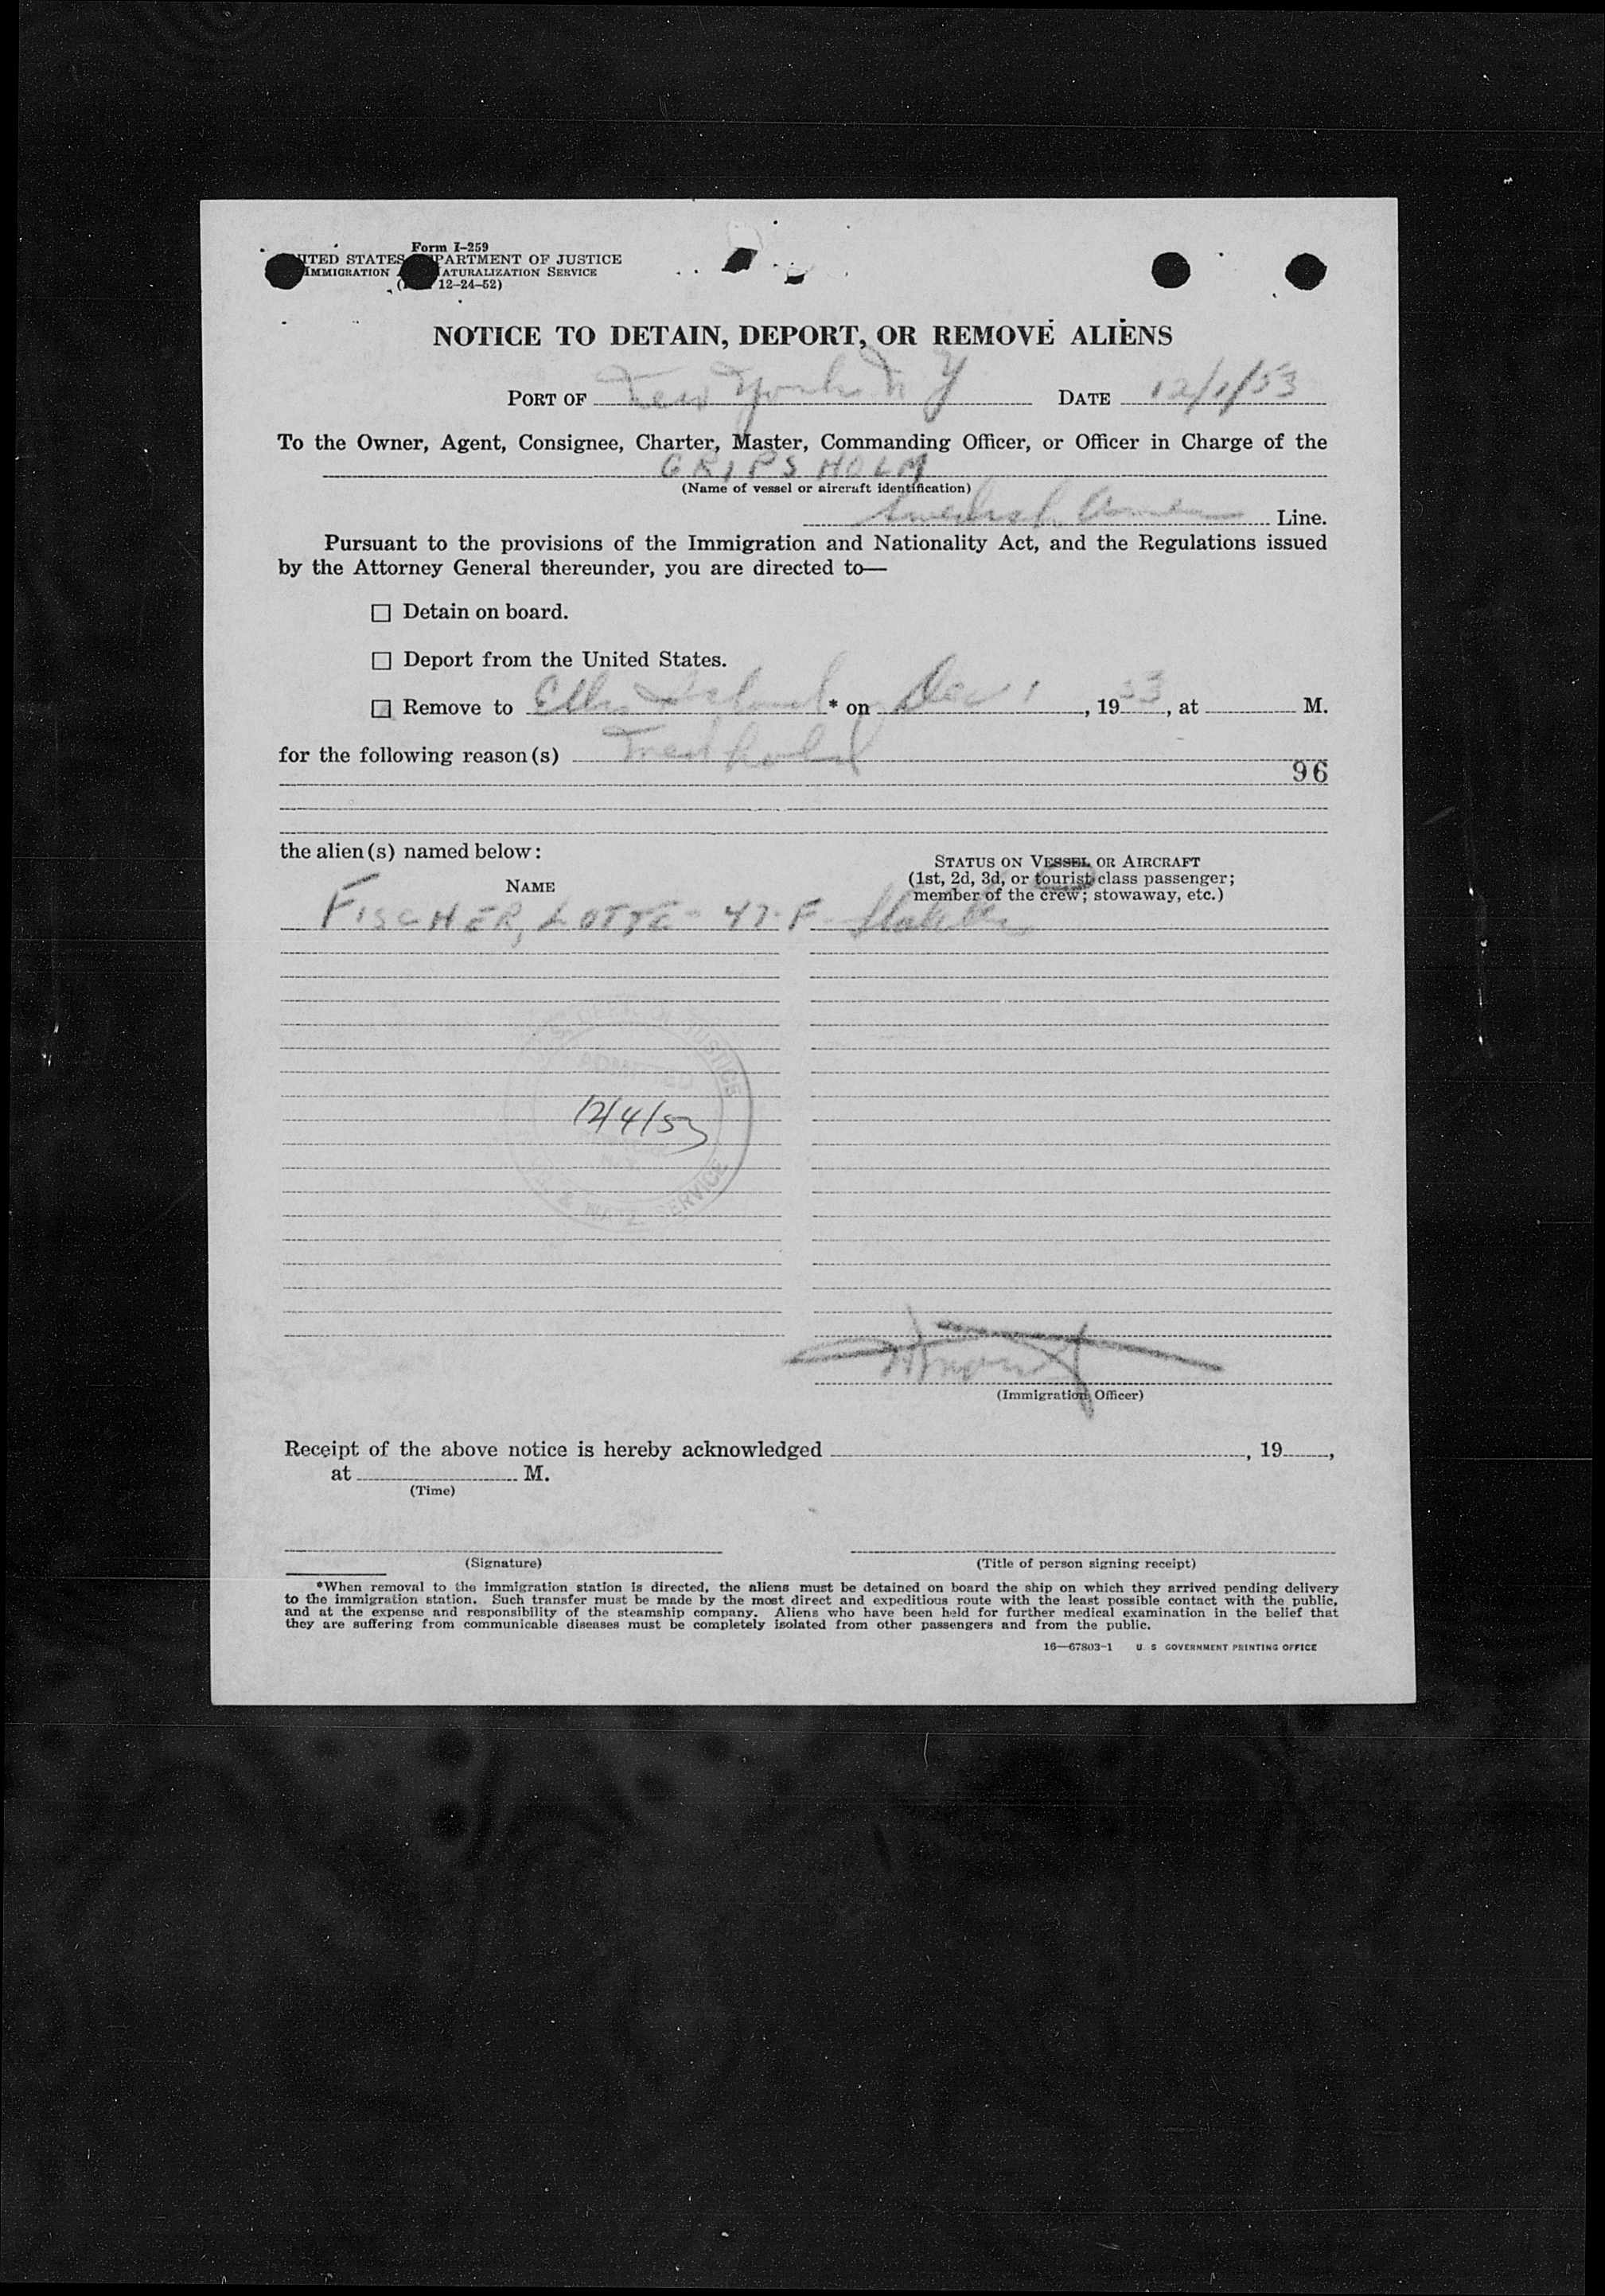 Form I-259
UNITED STATES DEPARTMENT OF JUSTICE
IMMIGRATION NATURALIZATION SERVICE
12-24-52)
NOTICE TO DETAIN, DEPORT, OR REMOVE ALIENS
PORT OF New York N Y DATE 12/1/53
To the Owner, Agent, Consignee, Charter, Master, Commanding Officer, or Officer in Charge of the
GRIPSHOLM
(Name of vessel or aircraft identification)
Swedish American Line.
Pursuant to the provisions of the Immigration and Nationality Act, and the Regulations issued
by the Attorney General thereunder, you are directed to—
☐ Detain on board.
☐ Deport from the United States.
☐ Remove to Ellis Island * on Dec 1, 1953, at M.
for the following reason(s) Med hold
96
the alien(s) named below:
STATUS ON VESSEL OR AIRCRAFT
(1st, 2d, 3d, or tourist class passenger;
member of the crew; stowaway, etc.)
NAME
FISCHER, LOTTE - 47-F
U.S. DEPT. OF JUSTICE
ADMITTED
12/4/53
& NATZ. SERVICE
(Immigration Officer)
Receipt of the above notice is hereby acknowledged , 19 ,
at M.
(Time)
(Signature) (Title of person signing receipt)
*When removal to the immigration station is directed, the aliens must be detained on board the ship on which they arrived pending delivery
to the immigration station. Such transfer must be made by the most direct and expeditious route with the least possible contact with the public,
and at the expense and responsibility of the steamship company. Aliens who have been held for further medical examination in the belief that
they are suffering from communicable diseases must be completely isolated from other passengers and from the public.
16—67803-1 U. S GOVERNMENT PRINTING OFFICE